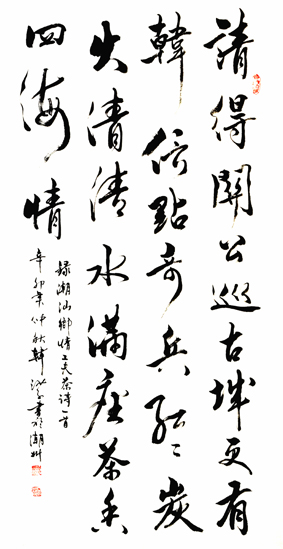 請得關公巡古城更有
韓信點奇兵紅〻炭
火清清水滿座茶香
四海情
錄潮汕鄉情工夫茶詩一首
辛卯年仲秋韓書於潮州